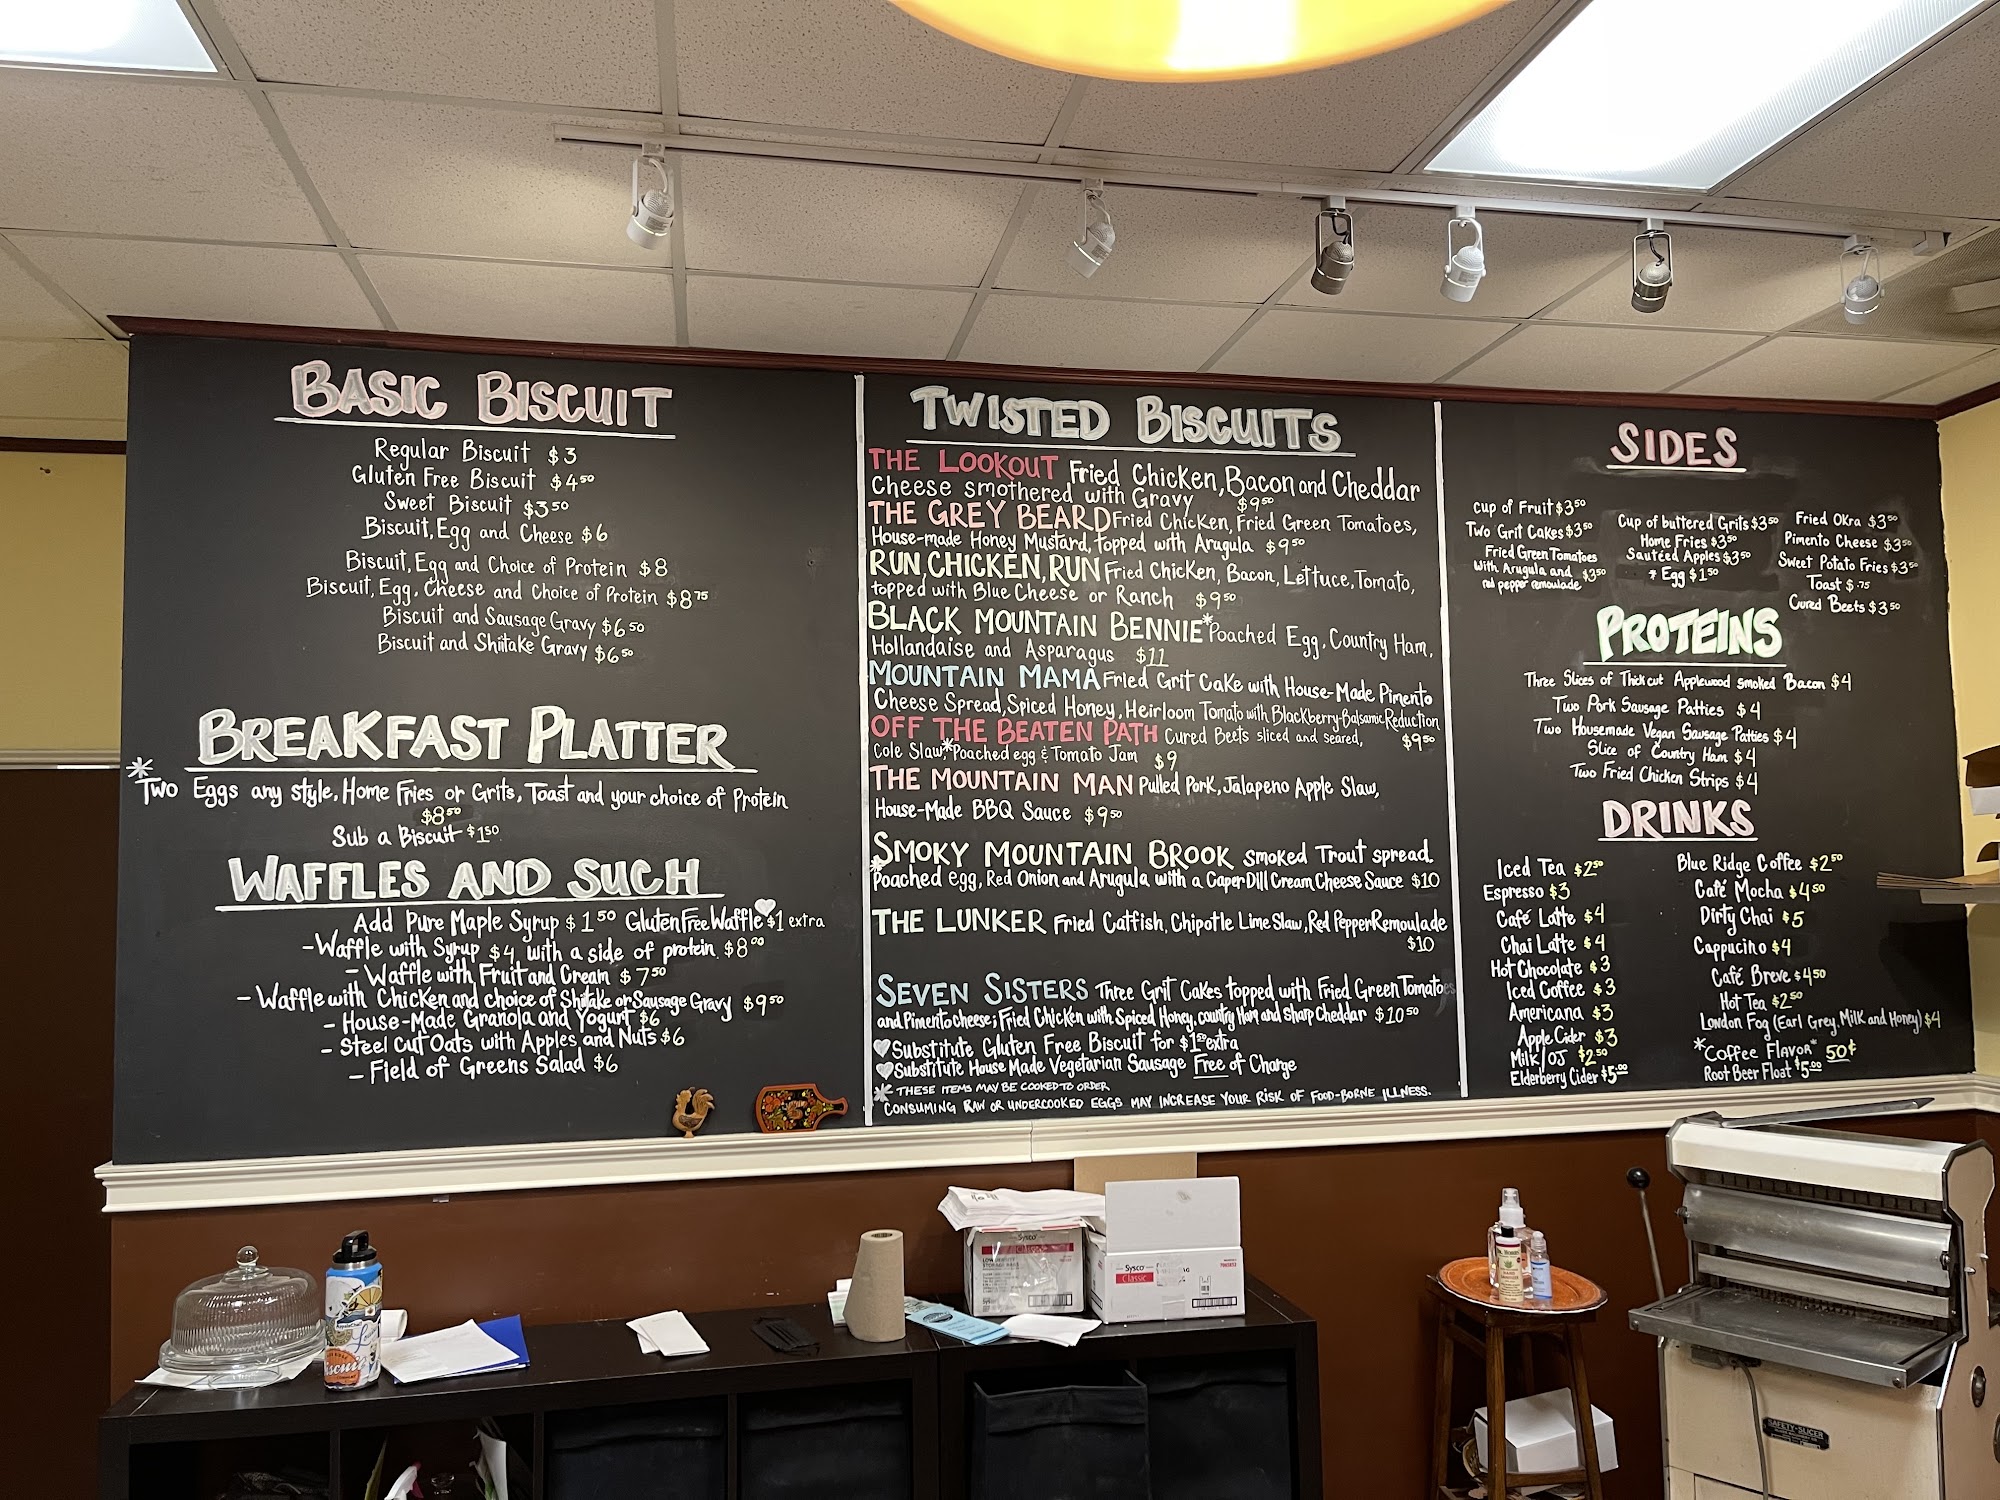 BASIC BISCUIT
Regular Biscuit $3
Gluten Free Biscuit $4 50
Sweet Biscuit $3 50
Biscuit, Egg and Cheese $6
Biscuit, Egg and Choice of Protein $8
Biscuit, Egg, Cheese and Choice of Protein $8 75
Biscuit and Sausage Gravy $6 50
Biscuit and Shiitake Gravy $6 50
BREAKFAST PLATTER
*Two Eggs any style, Home Fries or Grits, Toast and your choice of Protein
$8 50
Sub a Biscuit $1 50
WAFFLES AND SUCH
Add Pure Maple Syrup $1 50 Gluten Free Waffle $1 extra
- Waffle with Syrup $4 with a side of protein $8 00
- Waffle with Fruit and Cream $7 50
- Waffle with Chicken and choice of Shiitake or Sausage Gravy $9 50
- House-Made Granola and Yogurt $6
- Steel Cut Oats with Apples and Nuts $6
- Field of Greens Salad $6
TWISTED BISCUITS
THE LOOKOUT Fried Chicken, Bacon and Cheddar
Cheese smothered with Gravy $9 50
THE GREY BEARD Fried Chicken, Fried Green Tomatoes,
House-made Honey Mustard, topped with Arugula $9 50
RUN, CHICKEN, RUN Fried Chicken, Bacon, Lettuce, Tomato,
topped with Blue Cheese or Ranch $9 50
BLACK MOUNTAIN BENNIE* Poached Egg, Country Ham,
Hollandaise and Asparagus $11
MOUNTAIN MAMA Fried Grit Cake with House-Made Pimento
Cheese Spread, Spiced Honey, Heirloom Tomato with Blackberry-Balsamic Reduction
$9 50
OFF THE BEATEN PATH Cured Beets sliced and seared,
Cole Slaw, *Poached egg & Tomato Jam $9
THE MOUNTAIN MAN Pulled Pork, Jalapeno Apple Slaw,
House-Made BBQ Sauce $9 50
SMOKY MOUNTAIN BROOK Smoked Trout spread
*Poached egg, Red Onion and Arugula with a Caper Dill Cream Cheese Sauce $10
THE LUNKER Fried Catfish, Chipotle Lime Slaw, Red Pepper Remoulade
$10
SEVEN SISTERS Three Grit Cakes topped with Fried Green Tomatoes
and Pimento cheese, Fried Chicken with Spiced Honey, country Ham and sharp Cheddar $10 50
Substitute Gluten Free Biscuit for $1 50 extra
Substitute House Made Vegetarian Sausage Free of Charge
* THESE ITEMS MAY BE COOKED TO ORDER
CONSUMING RAW OR UNDERCOOKED EGGS MAY INCREASE YOUR RISK OF FOOD-BORNE ILLNESS.
SIDES
Cup of Fruit $3 50
Two Grit Cakes $3 50
Fried Green Tomatoes
with Arugula and $3 50
red pepper remoulade
Cup of buttered Grits $3 50
Home Fries $3 50
Sautéed Apples $3 50
* Egg $1 50
Fried Okra $3 50
Pimento Cheese $3 50
Sweet Potato Fries $3 50
Toast $ .75
Cured Beets $3 50
PROTEINS
Three Slices of Thick cut Applewood smoked Bacon $4
Two Pork Sausage Patties $4
Two Housemade Vegan Sausage Patties $4
Slice of Country Ham $4
Two Fried Chicken Strips $4
DRINKS
Iced Tea $2 50
Espresso $3
Café Latte $4
Chai Latte $4
Hot Chocolate $3
Iced Coffee $3
Americana $3
Apple Cider $3
Milk/OJ $2 50
Elderberry Cider $5.00
Blue Ridge Coffee $2 50
Café Mocha $4 50
Dirty Chai $5
Cappucino $4
Café Breve $4 50
Hot Tea $2 50
London Fog (Earl Grey, Milk and Honey) $4
*Coffee Flavor* 50¢
Root Beer Float $5.00
Sysco
Classic
Sysco
Classic
SAFETY-SLICER